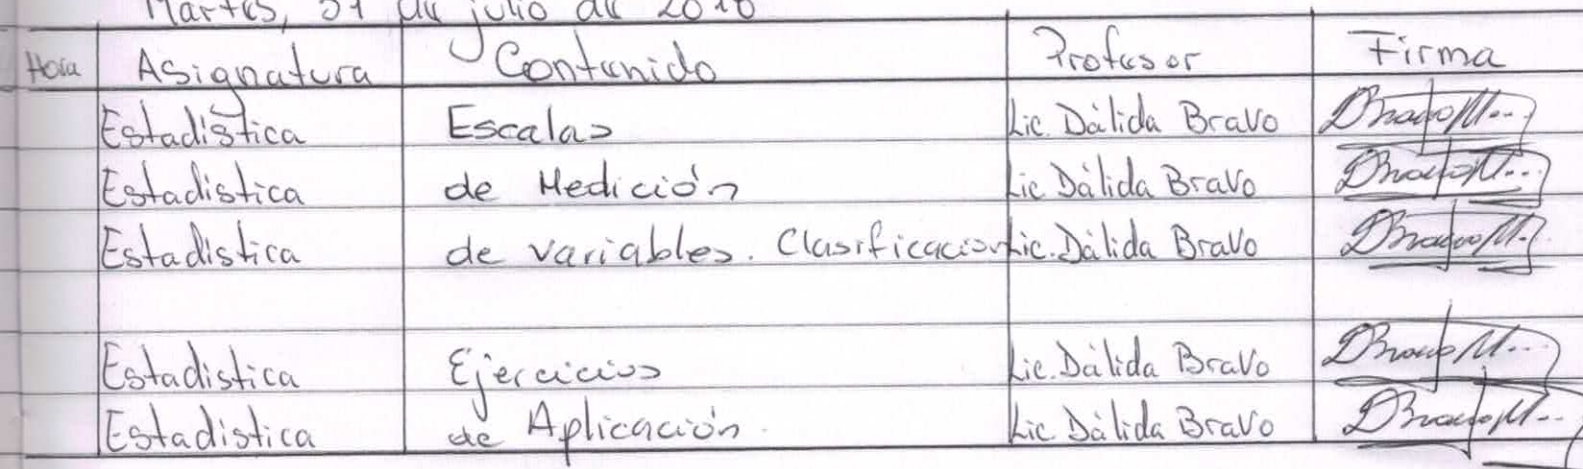 Martes, 31 de julio de 2018
Hora Asignatura Contenido Profesor Firma
Estadistica Escalas Lic. Dálida Bravo DBravoM...
Estadistica de Medición Lic. Dálida Bravo DBravoM...
Estadistica de variables. Clasificación Lic. Dálida Bravo DBravoM.
Estadistica Ejercicios Lic. Dálida Bravo DBravoM...
Estadistica de Aplicación. Lic. Dálida Bravo DBravoM...